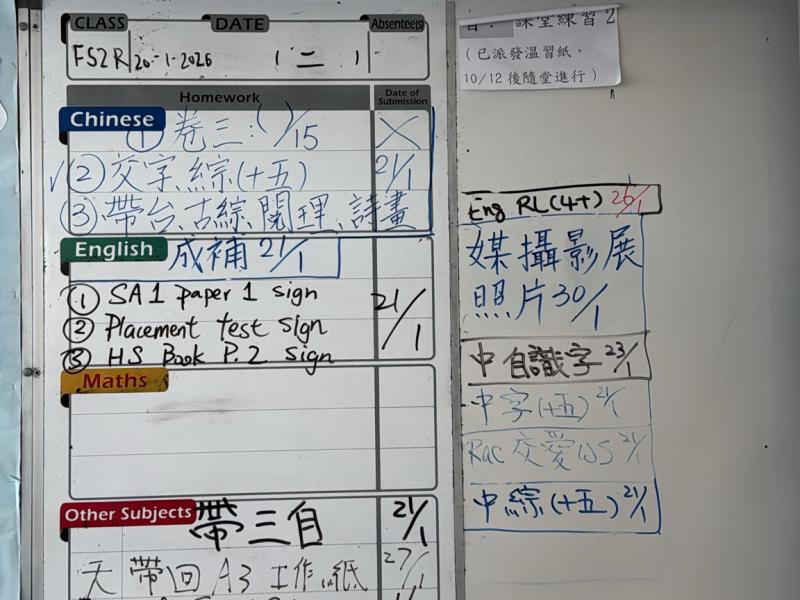 CLASS DATE Absentee(s)
FS2R 20-1-2026 ( 二 )
Homework Date of Submission
Chinese
① 卷三:( )/15 X
✓② 交字,綜(十五) 21/1
③ 帶台,古綜,閱理、詩畫
English 成補 21/1
① SA1 paper 1 sign
② Placement test sign 21/1
③ HS Book P.2 sign
Maths
Other Subjects 帶三自 21/1
帶回A3工作紙 27/1
課堂練習2
(已派發溫習紙,
10/12後隨堂進行)
Eng RL(4+) 26/1
媒攝影展
照片30/1
中自識字 23/1
中字(十五) 21/1
R&C交愛WS 21/1
中綜(十五) 21/1